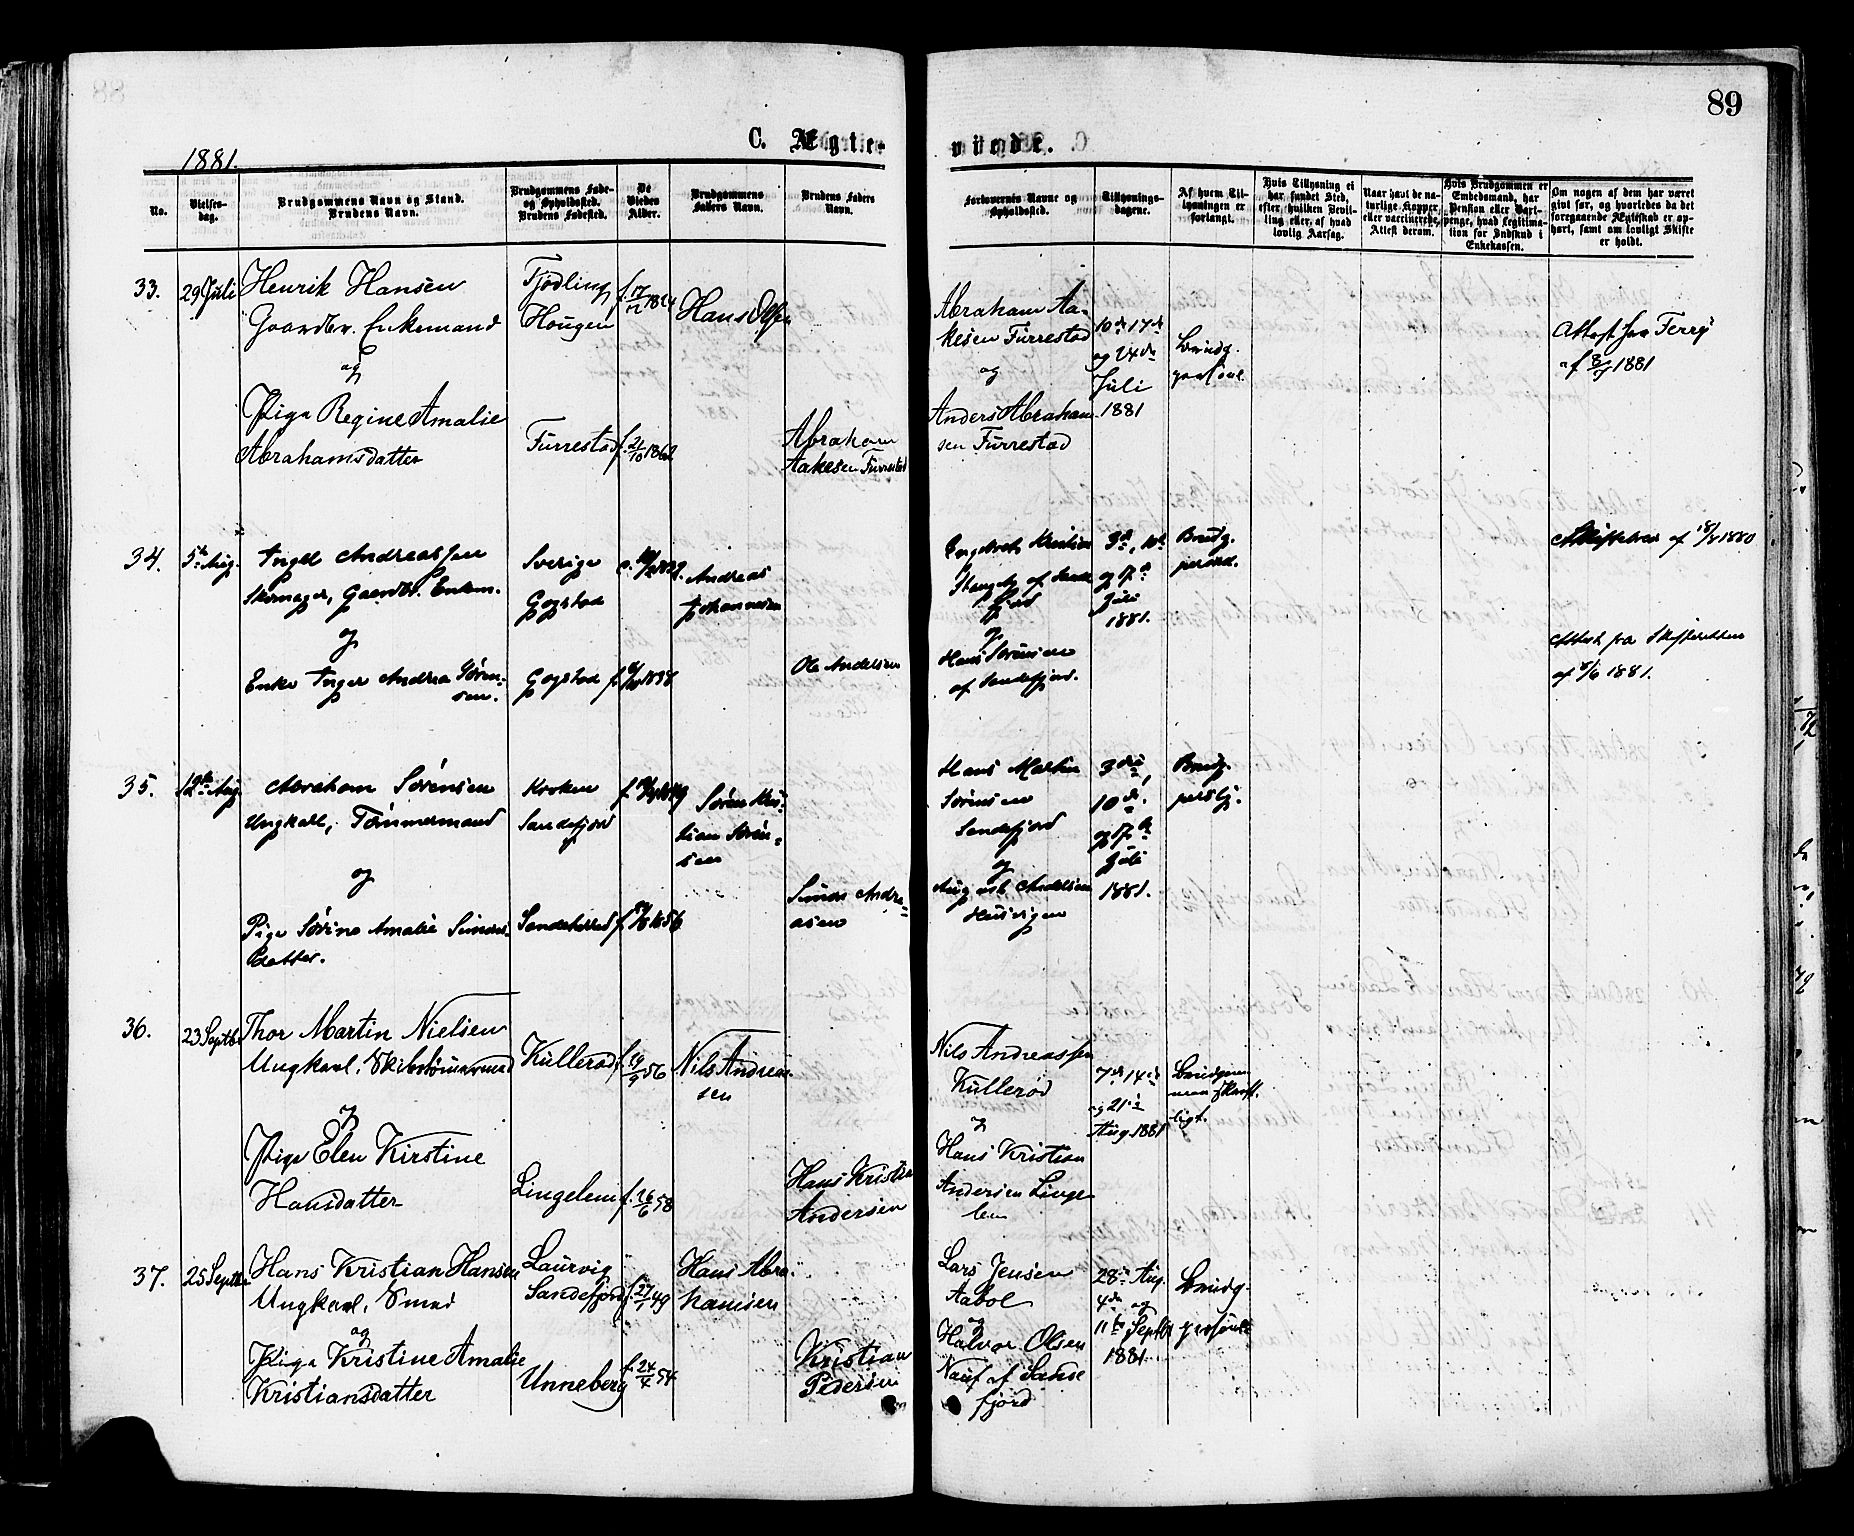 89
C. Ægtevi­ede.
1881.
No.
Vielses-
dag.
Brudgommens Navn og Stand.
Brudens Navn.
Brudgommens Føde-
og Opholdssted.
Brudens Fødested.
De
Viedes
Alder.
Brudgommens
Faders Navn.
Brudens Faders
Navn.
Forlovernes Navne og
Opholdssted.
Tillysnings-
dagene.
Af hvem Til-
lysningen er
forlangt.
Hvis Tillysning ei
har fundet Sted,
efter hvilken Bevil-
ling eller, af hvad
lovlig Aarsag.
Naar havt de na-
turlige Kopper,
eller vaccinerede,
Attest derom.
Hvis Brudgommen er
Embedsmand, har
Pension eller Vart-
penge, hvad Legitima-
tion for Indskud i
Enkekassen.
Om nogen af dem har været
gift før, og hvorledes da det
foregaaende Ægteskab er op-
hørt, samt om lovligt Skifte
er holdt.
33.
29 Juli
Henrik Hansen
Gaardbr. Enkemand
og
Pige Regine Amalie
Abrahamsdatter
Fjødling
Hougen
Furrestad
f. 17/12 1824
f. 21/10 1862
Hans Olsen
Abraham
Aakesen Furrestad
Abraham Aa-
kesen Furrestad
og
Anders Abraham-
sen Furrestad
10de 17de
og 24de
Juli
1881
Brudg.
Attest fra Ferry
af 8/7 1881
34.
5te Aug.
Ingel Andreassen
Skomager, Gaardbr. Enkem.
og
Enke Inger Andrea Søren-
sen.
Sverige
Gogstad
Gogstad
Andreas
Johannesen
Ole Andersen
af Sande
fjord
og
Hans Sørensen
af Sandefjord.
3die, 10de
og 17de
Juli
1881.
Brudg.
persønl.
af 18/8 1880
Attest fra Skifteretten
af 8/6 1881.
35.
12te Aug.
Abraham Sørensen
Ungkarl, Tømmermand
og
Pige Sørine Amalie Simons-
datter.
Kroken
Sandefjord
Sandeherred
Søren Kris-
tian Søren-
sen
Simon Andre-
asen
Hans Martin
Sørensen
Sandefjord
og
August Andersen
Husvigen
3die,
10de
og 17de
Juli
1881.
Brudg.
perslj.
36.
23 Septbr
Thor Martin Nielsen
Ungkarl, Skibstømmermand
og
Pige Elen Kirstine
Hansdatter
Kullerød
Lingelem
f. 19/9 56
f. 26/6 58
Nils Andrea-
sen
Hans Kristian
Andersen
Nils Andreassen
Kullerød
og
Hans Kristian
Andersen Linge-
lem
7de 14de
og 21de
Aug 1881
Brudgom-
men skrift-
ligt.
37.
25 Septbr
Hans Kristian Hansen
Ungkarl, Smed
og
Pige Kristine Amalie
Kristiansdatter
Laurvig
Sandefjord
Unneberg
f. 27/1 49
f. 24/4 54
Hans Abra-
hamsen
Kristian
Pedersen
Lars Jensen
Aabol
og
Halvor Olsen
Nauf af Sande
fjord
28de Aug.
4de og
11te Septbr
1881.
Brudg.
persønl.